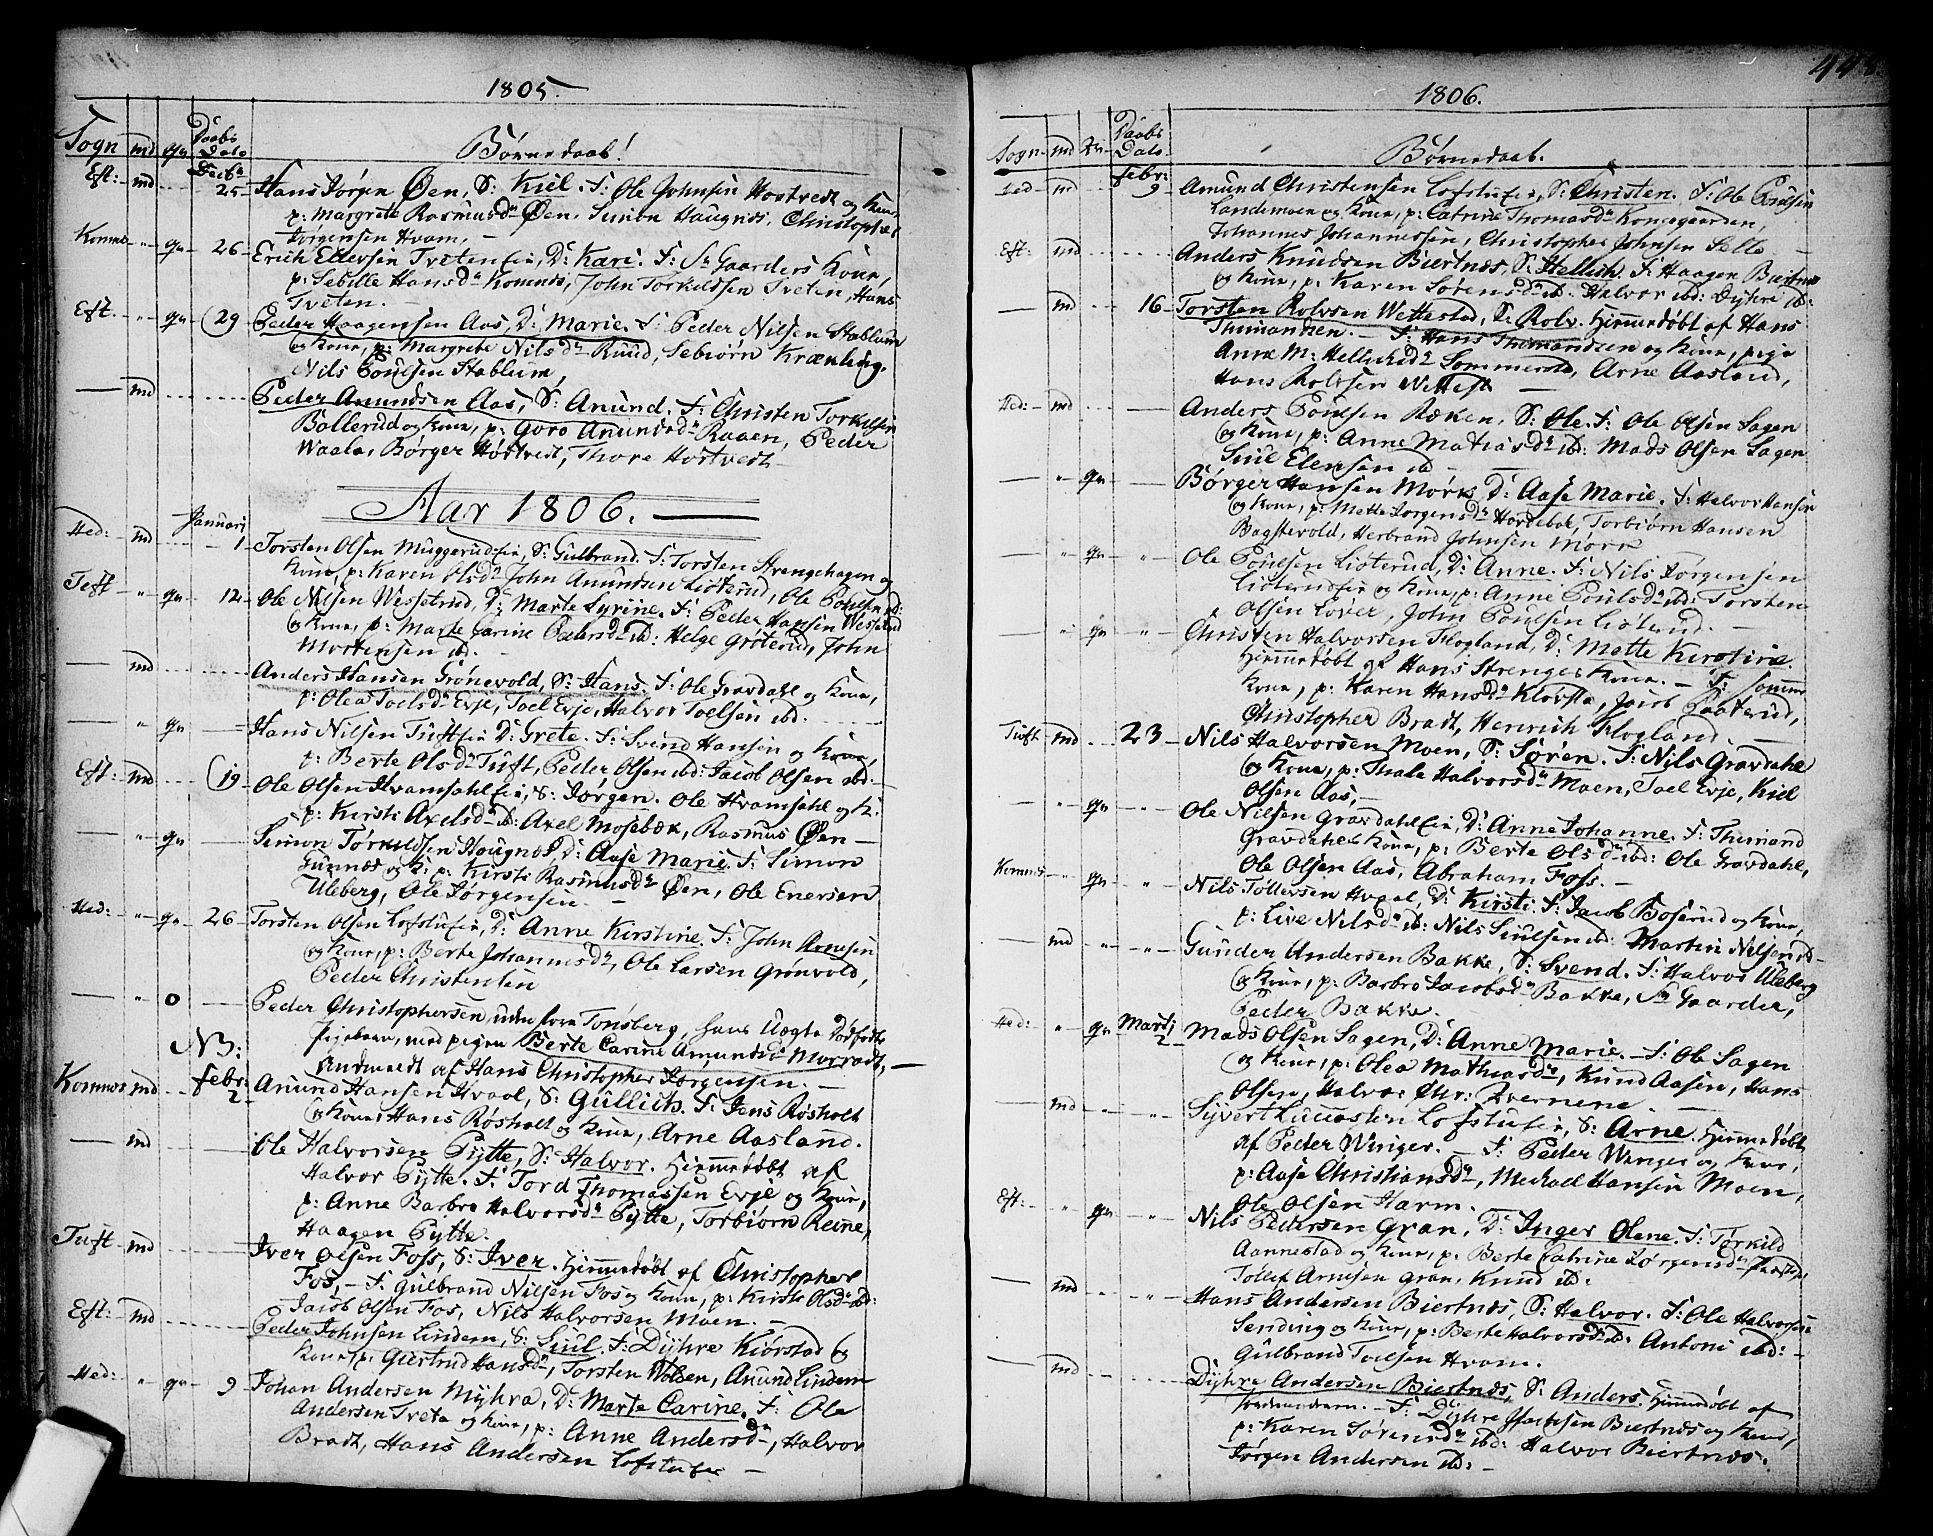 1805.
Sogn md qv Daabs Dato Børnedaab!
Decbr
Eft: md 25 Hans Jørgen Øen, S: Kiel. F: Ole Johnsen Hortvedt og Kone,
p: Margrete Rasmusdr Øen, Simon Haugnæs, Christopher
Jørgensen Hvam. —
Komnes " qv 26 Erich Ellevsen Tveten, D: Kari. F: Sr Gaarders Kone,
p: Sebille Hansdr Komnes, John Torkildsen Tveten, Hans
Tveten. —
Eft. " qv 29 Peder Haagensen Aas, D: Marie. F: Peder Nilsen Stablum
og Kone, p: Margrete Nilsdr Ruud, Sebiørn Krænling,
Nils Poulsen Stablum,
— md Peder Amundsen Aas, S: Anund. F: Christen Torkilsen
Bollerud og Kone, p: Goro Anundsdr Raaen, Peder
Waala, Børger Hørtvedt, Thore Hortvedt —
Aar 1806. —
Januari
Hed: md 1 Torsten Olsen Muggerud, S: Gulbrand. F: Torsten Strengehagen og
Kone, p: Karen Olsdr John Amundsen Lioterud, Ole Poulsen ibd:
Teft " qv 12 Ole Nilsen Wessetrud, D: Marte Syrine. F: Peder Hansen Wessetrud
og Kone, p: Marte Carine Pedersdr ibd: Helge Groterud, John
Mortensen ibd. —
— md Anders Hansen Grönevold, S: Hans. F: Ole Gravdahl og Kone,
p: Olea Toelsdr Evje, Toel Evje, Halvor Toelsen ibd.
— " qv — Hans Nilsen Tuft D: Grete. F: Svend Hansen og Kone,
p: Berte Olsdr Tuft, Peder Olsen ibd: Jacob Olsen ibd. —
Eft: md 19 Ole Olsen Hvamsahl, S: Jørgen. Ole Hvamsahl og K.
p: Kirsti Axelsdr ib: Axel Mosebæk, Rasmus Øen —
— " qv Simon Torkildsen Hougnæs, D: Aase Marie. F: Simon
Gunnæs og K: p: Kirsti Rasmusdr Øen, Ole Enersen
Uleberg, Ole Jørgensen. —
Hed: " qv 26 Torsten Olsen Lofstu, D: Anne Kirstine. F: John Arnesen
og Kone, p: Berte Johannesdr, Ole Larsen Grönvold,
Peder Christensen
— " o — Peder Christophersen, Tonsberg, hans
NB: med pigen Berte Carine Amundsdr Morradt, —
af Hans Christopher Jørgensen. —
Komnes md Febr: 2 Anund Hansen Hvaal, S: Gullich. F: Jens Røsholt
og Kone Hans Røsholt og Kone, Arne Aasland.
— md Ole Halvorsen Pytte, S: Halvor. Hiemmedøbt af
Halvor Pytte. F: Tord Thomassen Evje og Kone,
p: Anne Barbro Halvorsdr Pytte, Torbiörn Reine,
Haagen Pytte.
Tuft md Iver Olsen Foss, S: Iver. Hiemmedøbt af Christopher
Fos, — F: Gulbrand Nilsen Fos og Kone, p: Kirste Olsdr ibd:
Jacob Olsen Fos, Nils Halvorsen Moen. —
Eft: md Peder Johnsen Lindem, S: Siul. F: Dyhre Kiörstad og
Kone, p: Giertrud Hansdr, Torsten Wolsen, Anund Lindem
Hed: " qv 9 Johan Andersen Myhra, D: Marte Carine. F: Ole
Andersen Tveta og Kone, p: Anne Andersdr, Halvor
Bradt, Hans Andersen Lofstuter —
1806.
Sogn md Qv Daabs Dato Børnedaab.
Febr:
Hed md 9 Amund Christensen Lofstu, S: Christen. F: Ole Poulsen
Landemoen og Kone, p: Catrine Thomasdr Kongegaarden,
Johannes Johannessen, Christopher Johnsen Selle —
Eft: md Anders Knudsen Biertnæs, S: Hellich. F: Haagen Biertnæs
og Kone, p: Karen Sørensdr ib: Halvor ibd: Dyhre ib:
— md 16 Torsten Rolvsen Wettestad, S: Rolv. Hiemmedøbt af Hans
Thomandsen. — F: Hans Thomandsen og Kone, pige
Anne M: Hellichsdr Sommerold, Arne Aasland,
Hans Rolvsen Wettest —
Hed: md — Anders Poulsen Ræken, S: Ole. F: Ole Olsen Sagen
og Kone, p: Anne Matiasdr ibd: Mads Olsen Sagen
Siul Elensen ib —
— " qv Børger Hansen Mørk D: Aase Marie. F: Halvor Hansen
og Kone, p: Mette Jorgensdr Hordebak, Torbiørn Hansen
Bagstevold, Herbrand Johnsen Mörk
— " qv " Ole Poulsen Lioterud, D: Anne. F: Nils Jørgensen
Lioterud og Kone, p: Anne Poulsdr ibd: Torsten
Olsen Lover, John Poulsen Lioterud. —
— " qv " Christen Halvorsen Skogland, D: Mette Kirstine.
Hiemmedøbt af Hans Strenges Kone. —
Kone, p: Karen Hansdr Klovsta, Jacob Paaterud,
Christopher Bradt, Henrich Skogland. —
Tuft md 23 Nils Halvorsen Moen, S: Sören. F: Nils Gravdahl
og Kone, p: Thale Halvorsdr Moen, Toel Evje, Kiel
Olsen Aas, —
— " qv " Ole Nilsen Gravdahl, D: Anne Johanne. F: Thomand
Gravdahls Kone, p: Berte Olsdr ibd: Ole Gravdahl,
Ole Olsen Aas, Abraham Foss. —
Komnes " qv " Nils Tollersen Hvaal, D: Kirsti. F: Jacob Boserud og Kone,
p: Live Nilsdr ib: Nils Siulsen ibd: Martin Nilsen ibd —
— md " " Gunder Andersen Bakke, S: Svend. F: Halvor Uleberg
og Kone, p: Barbro Jacobsdr Bakke, Sr Gaarder,
Peder Bakke.
Hed: " qv Martj 2 Mads Olsen Sagen, D: Anne Marie. — F: Ole Sagen
og Kone, p: Olea Mathiasdr, Knud Aasen, Hans
Olsen, Halvor Chr: Kvernene. —
— md — " Syvert Lucassen Lofstu, S: Arne. Hiemmedøbt
af Peder Winger. — F: Peder Winger og Kone,
p: Aase Christiansdr, Michael Hansen Moen,
Ole Olsen Harm.
Eft: " qv " Nils Pedersen Gran, D: Inger Olene. F: Torkild
Aannestad og Kone, p: Berte Catrine Jörgensdr
Tollef Arnesen Gran, Knud ib:
— md " " Hans Andersen Biertnæs, S: Halvor. F: Ole Halvorsen
Sending og Kone, p: Berte Halvorsdr ib: Antoni ibd: —
Gulbrand Toelsen Hvam.
— md Dyhre Andersen Biertnæs, S: Anders. Hiemmedøbt af
— F: Dyhre Jacobsen Biertnæs og Kone,
p: Karen Sørensdr ibd: Halvor Biertnæs.
Jørgen Andersen ib: —